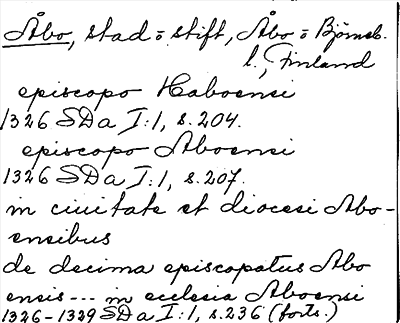 Åbo, stad o stift, Åbo o Björneb.
l., Finland
episcopo Haboensi
1326 SDa I:1, s. 204.
episcopo Aboensi
1326 SDa I:1, s. 207.
in ciuitate et diocesi Abo-
ensibus
de decima episcopatus Abo
ensis --- in ecclesia Aboensi
1326-1329 SDa I:1, s. 236 (forts.)